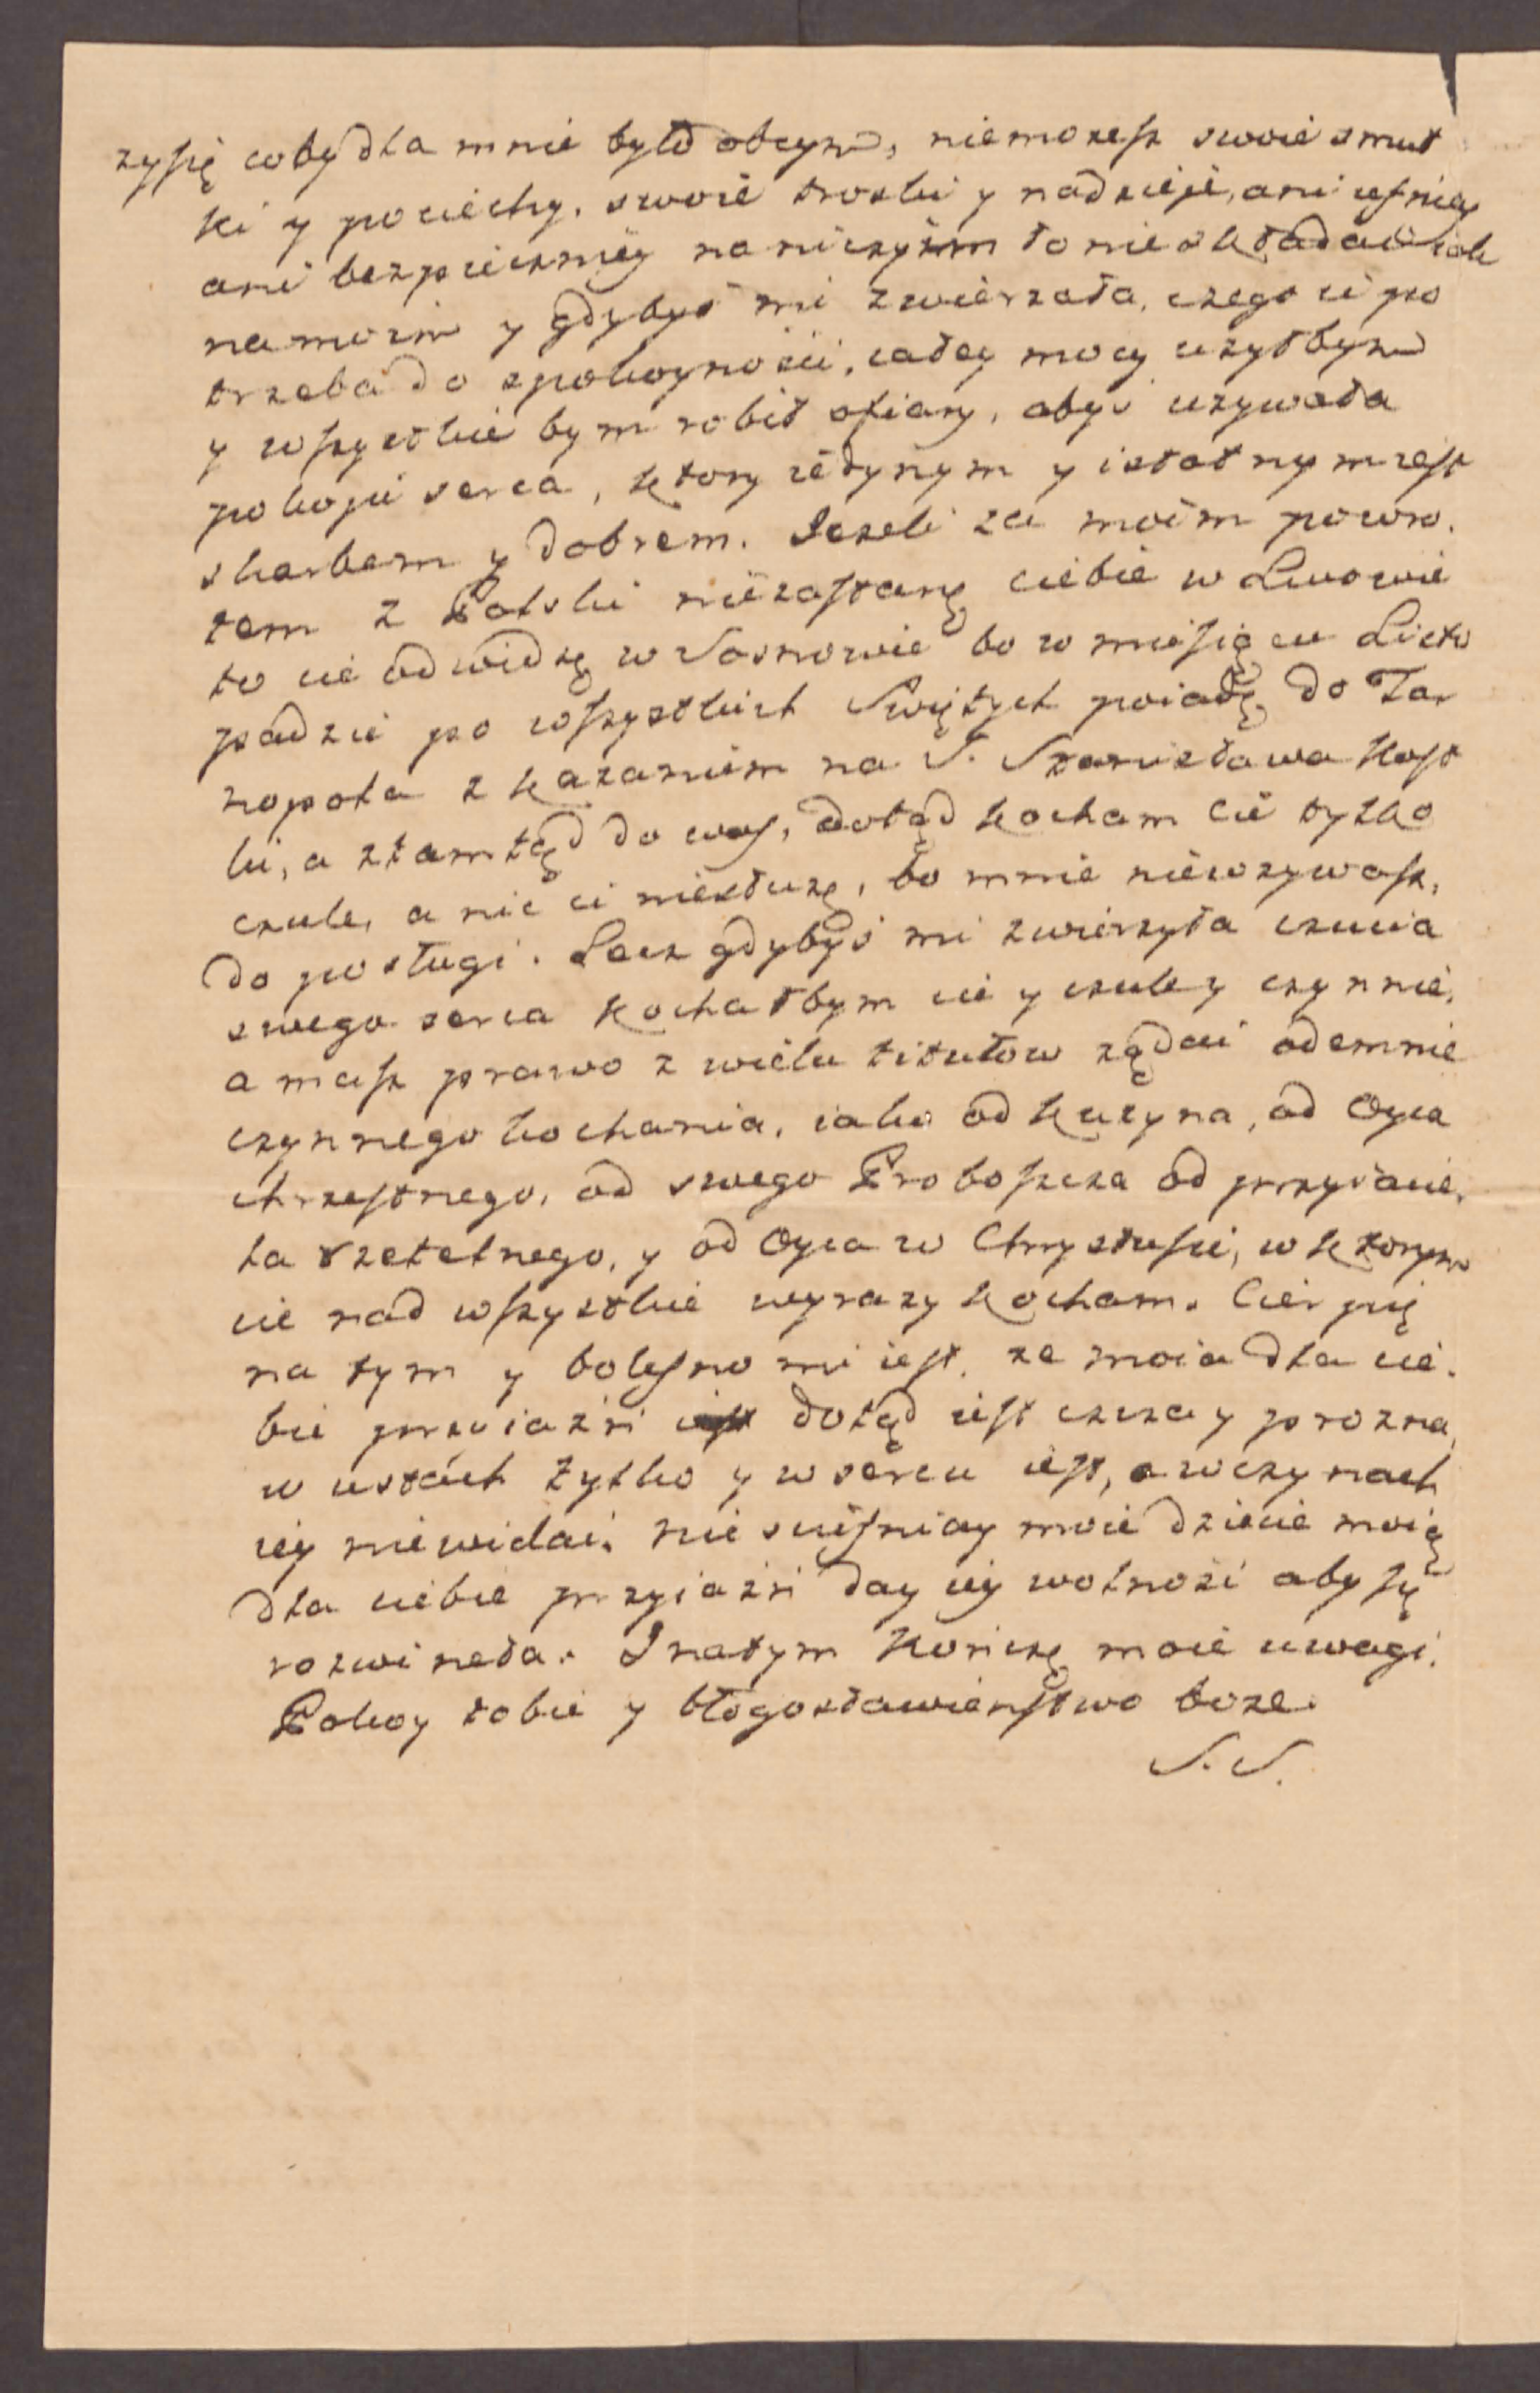 zysię coby dla mnie było obcym, niemozesz swoie smut
ki y pociechy, swoie troski y nadzieje, ani ufniey
ani bezpieczniey na niczyim łonie składać iak
na moim y gdybyś mi zwierzała, czego ci po
trzeba do spokoyności, całey mocy użyłbym
y wszystkie bym robił ofiary, abyś uzywała
pokoju serca, ktory iedynym y istotnym iest
skarbem y dobrem. Jezeli za moim powro.
tem z Polski niezastanę ciebie w Lwowie
to cie odwidzę w Sosnowie bo w miesiącu Listo
padzie po wszystkich Swiętych poiadę do Tar
nopola z kazaniem na S. Stanisława Kost
ki, a ztamtąd do was, dotąd kocham cie tylko
czule, a nic ci niesłuzę, bo mnie niewzywasz,
do posługi. Lecz gdybyś mi zwierzyła czucia
swego serca kochałbym cie y czule y czynnie,
a masz prawo z wielu titułow ządać odemnie
czynnego kochania, iako od kuzyna, od Oyca
chrzestnego, od swego Proboszcza od przyiacie,
la rzetelnego, y od Oyca w Chrystusie, w ktorym
cie nad wszystkie wyrazy kocham. Cierpię
na tym y bolesno mi iest, ze moia dla cie.
bie przyiazń dotąd iest czcza y prozna,
w ustach tylko y w sercu iest, a w czynach
iey niewidać. Nie scieśniay moie dziecie moię
dla ciebie przyiazń day iey wolność aby się
rozwineła. I natym kończę moie uwagi.
Pokoy tobie y błogosławieństwo boze.
S. S.